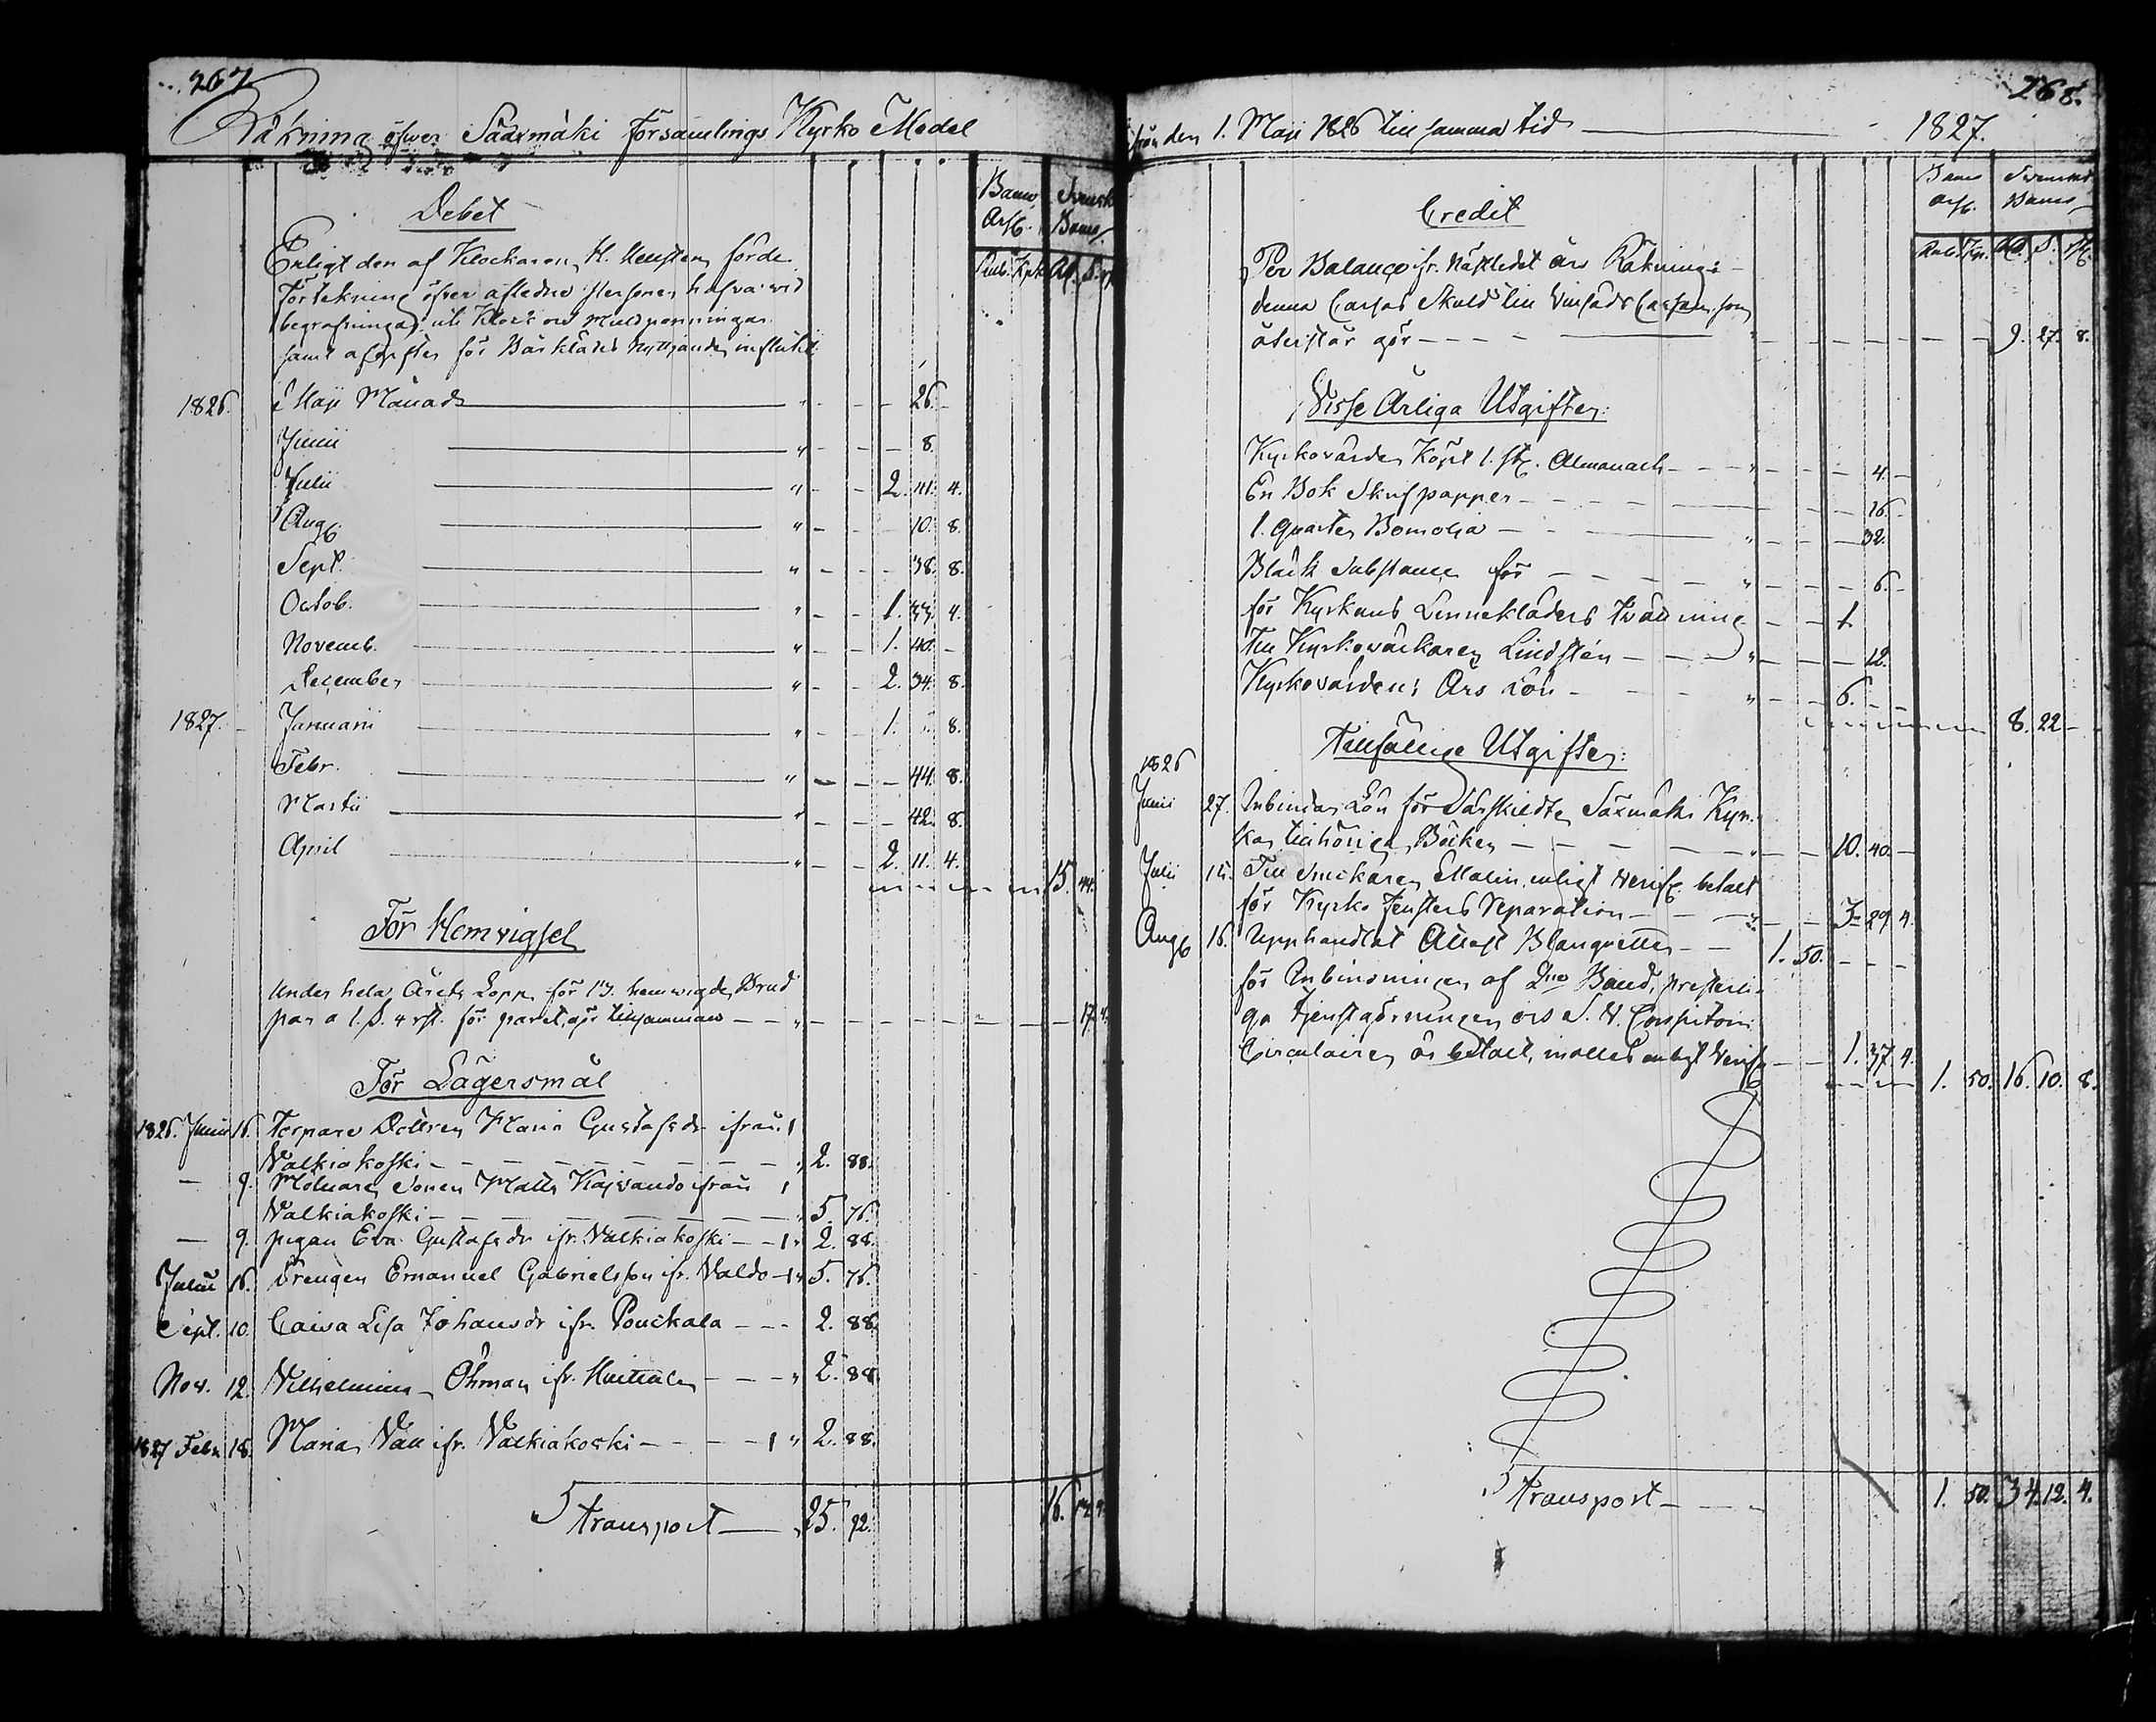 267
Räkning öfwer Sääxmäki församlings Kyrko Medel
Debet
Banco Ass. Svensk Banco.
Rub. Kpk. Rd. S. rst.
Enligt den af Klockaren H. förde
förtekning öfver aflidne personer hafva vid
begrafningar uti Klock och Muldpenningar
samt afgifter för Bårklädets nyttjande influtit
1826. Maji Månad " - - - 26. -
Junii " - - - 8.
Julii " - - 2. 41. 4.
Aug. " - - - 10. 8.
Sept. " - - - 38. 8.
Octob. " - - 1. 33. 4.
Novemb. " - - 1. 40. -
December " - - 2. 34. 8.
1827. Januarii " - - 1. 5. 8.
Febr. " - - - 44. 8.
Martii " - - - 42. 8.
April " - - 2. 11. 4.
15. 44.
För Hemvigsel
Under hela Årets Lopp för 13. hemwigde Brud
par a 1. s. 4 rst. för paret, gör tillsammans - - " 17. 4.
För Lägersmål
1826. Junii 16. Torpare Dottren Maria Gustafsdr ifrån 1
Valkiakoski - - - " 2. 88.
- 9. Mölnare Sonen Matts Kajvando ifrån 1
Valkiakoski - - - " 5. 76.
- 9. pigan Eva Gustafsdr ifr. Valkiakoski - - 1 " 2. 88.
Julii 16. Drengen Emanuel Gabrielsson ifr. Valdo - 1 " 5. 76.
Sept. 10. Caisa Lisa Johansdr ifr. Pouckala - - - 2. 88.
Nov. 12. Vilhelmina Öhman ifr. - - - " 2. 88.
1827 Febr. 18. Maria Vall ifr. Valkiakoski - - - 1 " 2. 88.
Transport — " 25. 92. 16. 13. 4.
268.
från den 1. Maji 1826 till samma tid — 1827.
Credit
Banco Ass. Svenskt Banco
Rub. Kp. Rd. S. rst.
Per Balance ifr. Nästledet års Räkning i
denna Cassas Skuld till Cassan, som
återstår gör - - - - 9. 27. 8.
Visse Årliga Utgifter:
Kyrkovärden köpt 1. st. Almanach - - - " - - - 4. -
En Bok Skrifpapper - - - - - 16. -
1. quarter Bomolja - - - " - - - 32.
Bläck Substance för - - - - " - - - 6. -
för Kyrkans Linneklädets tvättning - - 1.
Till Kyrkoväckaren Lindstén - - - " - - - 12.
Kyrkovärdens Års Lön - - - " - - 6. - -
8. 22 -
Tillfällige Utgifter:
1826
Junii 27. Inbindar Lön för Särskildte Säxmäki Kyr-
kas tillhöriga Böcker - - - " - - 10. 40. -
Julii 15. Till Snickaren Malin, enligt Verif. betalt
för Kyrko fensters Reparation - - - " - - 3 29 4.
Aug. 16. Upphandlat Attest Blanquetter - - 1. 50. - - -
för Inbindningen af 2ne Band, presterli-
ga tjenstgörningen
Circulairer är betalt, enligt Verif. - - 1. 37 4.
1. 50. 16. 10. 8.
Transport - - - - 1. 50. 34. 12. 4.